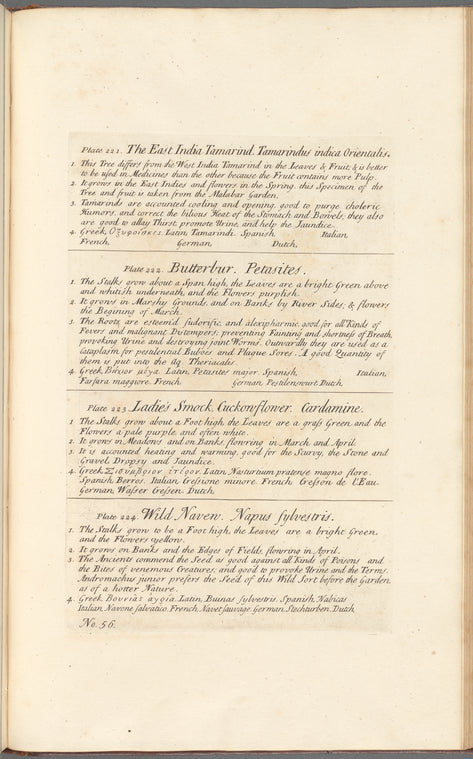 Plate 221. The East India Tamarind. Tamarindus indica Orientalis.
1. This Tree differs from the West India Tamarind in the Leaves & Fruit, & is better
to be used in Medicines than the other because the Fruit contains more Pulp.
2. It grows in the East Indies and flowers in the Spring. this Specimen of the
Tree and fruit is taken from the Malabar Garden.
3. Tamarinds are accounted cooling and opening, good to purge choleric
Humors, and correct the bilious Heat of the Stomach and Bowels; they also
are good to allay Thirst, promote Urine, and help the Jaundice.
4. Greek, Οξυφοίνικες. Latin, Tamarindi. Spanish, Italian,
French, German, Dutch,
Plate 222. Butterbur. Petasites.
1. The Stalks grow about a Span high, the Leaves are a bright Green above
and whitish underneath, and the Flowers purplish.
2. It grows in Marshy Grounds, and on Banks by River Sides, & flowers
the Begining of March.
3. The Roots, are esteem'd sudorific, and alexipharmic, good for all Kinds of
Fevers and malignant Distempers, preventing Fainting and shortness of Breath,
provoking Urine and destroying joint Worms. Outwardly they are used as a
Cataplasm for pestilential Buboes and Plague Sores. A good Quantity of
them is put into the Aq. Theriacalis.
4. Greek, μέγα. Latin, Petasites major. Spanish, Italian,
Farfara maggiore. French, German, Pestilenswurt. Dutch,
Plate 223. Ladies Smock. Cuckowflower. Cardamine.
1. The Stalks grow about a Foot high, the Leaves are a grass Green and the
Flowers a pale purple, and often white.
2. It grows in Meadows and on Banks, flowring in March and April.
3. It is accounted heating and warming, good for the Scurvy, the Stone and
Gravel, Dropsy and Jaundice.
4. Greek, Σισύμβριον ἕτερον. Latin, Nasturtium pratense magno flore.
Spanish, Berros. Italian, Cresione minore. French, Cresson de L'Eau.
German, Wasser Cressen. Dutch,
Plate 224. Wild Navew. Napus sylvestris.
1. The Stalks grow to be a Foot high, the Leaves are a bright Green,
and the Flowers yellow.
2. It grows on Banks and the Edges of Fields, flowring in April.
3. The Ancients commend the Seed as good against all Kinds of Poisons and
the Bites of venemous Creatures; and good to provoke Urine and the Terms.
Andromachus junior prefers the Seed of this Wild Sort before the Garden
as of a hotter Nature.
4. Greek, Βουνιὰς ἀγρία. Latin, Buinas sylvestris. Spanish, Nabicas
Italian, Navone salvatico. French, Navet sauvage. German, Stechturben. Dutch,
No. 56.